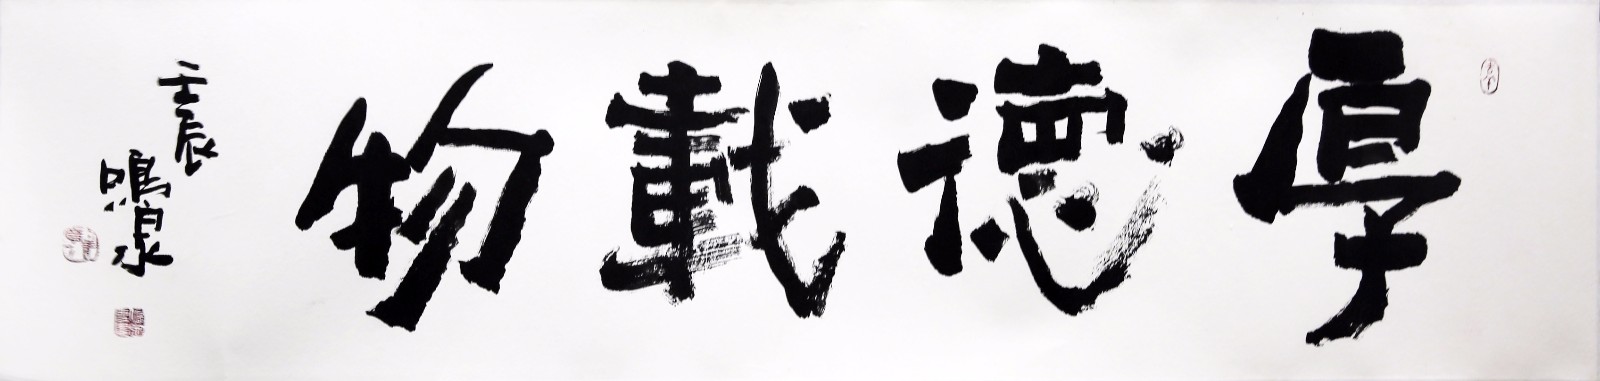 厚德載物
壬辰
鳴泉